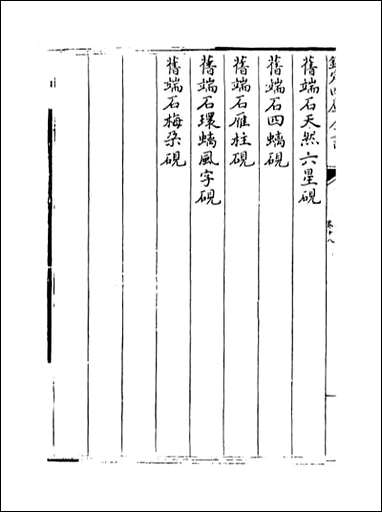 欽定四庫全書
卷十八
舊端石天然六星硯
舊端石四螭硯
舊端石雁柱硯
舊端石環螭風字硯
舊端石梅朶硯